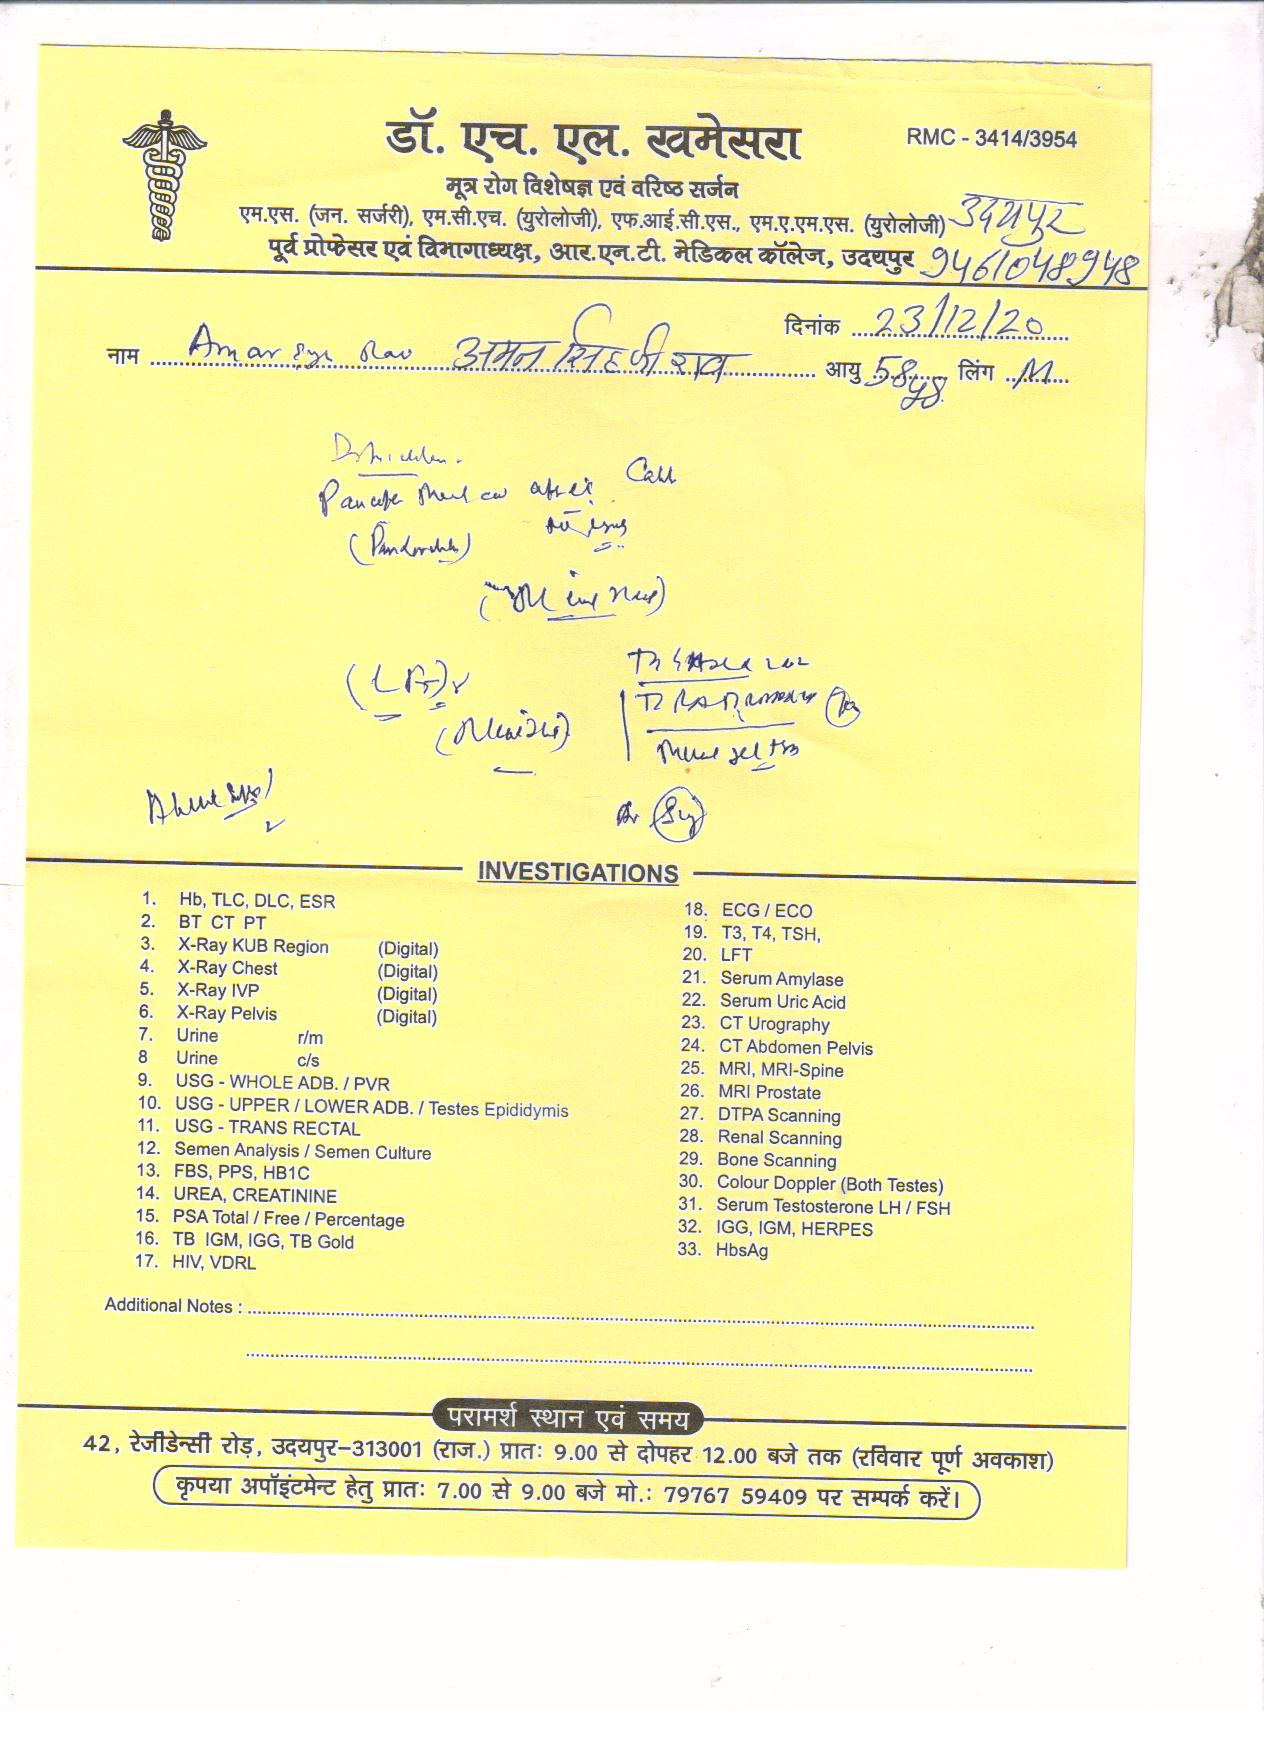 डॉ. एच. एल. खमेसरा
RMC - 3414/3954
मूत्र रोग विशेषज्ञ एवं वरिष्ठ सर्जन
एम.एस. (जन. सर्जरी), एम.सी.एच. (युरोलोजी), एफ.आई.सी.एस., एम.ए.एम.एस. (युरोलोजी) उदयपुर
पूर्व प्रोफेसर एवं विभागाध्यक्ष, आर.एन.टी. मेडिकल कॉलेज, उदयपुर 9461048948
दिनांक 23/12/20
नाम Amar Rao अमन सिंह जी राव आयु 58 लिंग M
Call
INVESTIGATIONS
1. Hb, TLC, DLC, ESR
2. BT CT PT
3. X-Ray KUB Region (Digital)
4. X-Ray Chest (Digital)
5. X-Ray IVP (Digital)
6. X-Ray Pelvis (Digital)
7. Urine r/m
8 Urine c/s
9. USG - WHOLE ADB. / PVR
10. USG - UPPER / LOWER ADB. / Testes Epididymis
11. USG - TRANS RECTAL
12. Semen Analysis / Semen Culture
13. FBS, PPS, HB1C
14. UREA, CREATININE
15. PSA Total / Free / Percentage
16. TB IGM, IGG, TB Gold
17. HIV, VDRL
18. ECG / ECO
19. T3, T4, TSH,
20. LFT
21. Serum Amylase
22. Serum Uric Acid
23. CT Urography
24. CT Abdomen Pelvis
25. MRI, MRI-Spine
26. MRI Prostate
27. DTPA Scanning
28. Renal Scanning
29. Bone Scanning
30. Colour Doppler (Both Testes)
31. Serum Testosterone LH / FSH
32. IGG, IGM, HERPES
33. HbsAg
Additional Notes :
परामर्श स्थान एवं समय
42, रेजीडेन्सी रोड़, उदयपुर-313001 (राज.) प्रातः 9.00 से दोपहर 12.00 बजे तक (रविवार पूर्ण अवकाश)
कृपया अपॉइंटमेन्ट हेतु प्रातः 7.00 से 9.00 बजे मो.: 79767 59409 पर सम्पर्क करें।